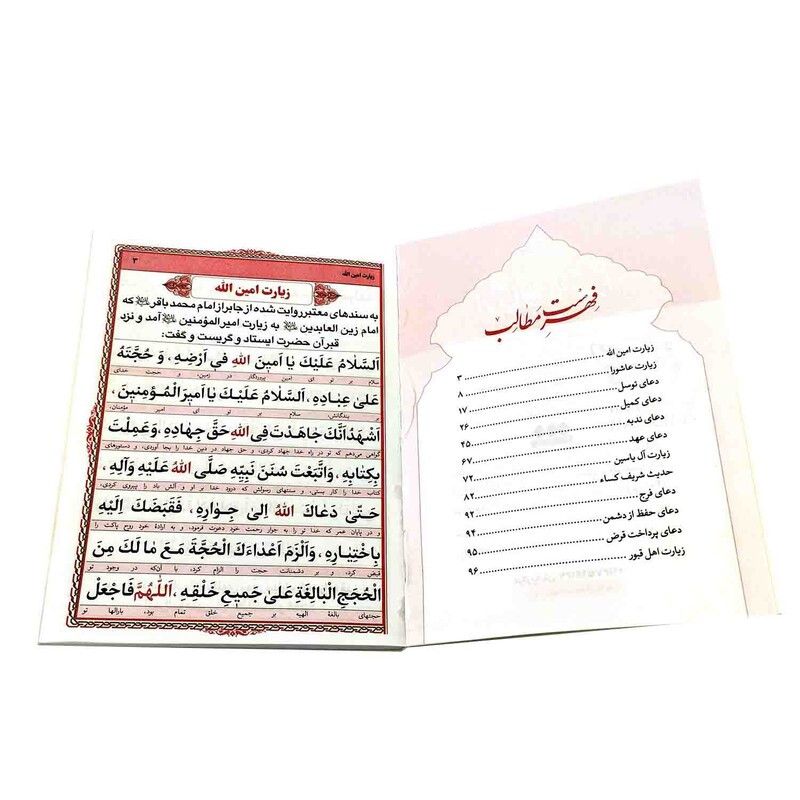 فهرست مطالب
زیارت امین الله ................ ۳
زیارت عاشورا ................ ۸
دعای توسل ................ ۱۷
دعای کمیل ................ ۲۶
دعای ندبه ................ ۴۵
دعای عهد ................ ۶۷
زیارت آل یاسین ................ ۷۲
حدیث شریف کساء ................ ۸۲
دعای فرج ................ ۹۲
دعای حفظ از دشمن ................ ۹۴
دعای پرداخت قرض ................ ۹۵
زیارت اهل قبور ................ ۹۶
زیارت امین الله ۳
زیارت امین الله
به سندهای معتبر روایت شده از جابر از امام محمد باقر که
امام زین العابدین به زیارت امیر المؤمنین آمد و نزد
قبر آن حضرت ایستاد و گریست و گفت:
اَلسَّلامُ عَلَیْكَ یٰا اَمینَ اللهِ فی اَرْضِهِ، وَ حُجَّتَهُ
سلام بر تو ای امین پروردگار در زمین، و حجت خدای
عَلیٰ عِبادِهِ، اَلسَّلامُ عَلَیْكَ یٰا اَمیرَ الْمُؤمِنینَ،
بر بندگانش، سلام بر تو ای امیر مؤمنان،
اَشْهَدُ اَنَّكَ جٰاهَدْتَ فِی اللهِ حَقَّ جِهادِهِ، وَ عَمِلْتَ
گواهی می‌دهم که تو در راه خدا جهاد کردی، حق جهاد در دین خدا را بجا آوردی، و دستورهای
بِکِتٰابِهِ، وَ اتَّبَعْتَ سُنَنَ نَبِیِّهِ صَلَّی اللهُ عَلَیْهِ وَ آلِهِ،
کتاب خدا را کار بستی، و سنتهای رسولش که درود خدا بر او و آلش باد را پیروی کردی،
حَتّیٰ دَعٰاكَ اللهُ اِلیٰ جِوٰارِهِ، فَقَبَضَكَ اِلَیْهِ
و در پایان عمر که خدا تو را به جوار رحمت خود دعوت فرمود، و به ارادهٔ خود روح پاکت را
بِاخْتِیٰارِهِ، وَ اَلْزَمَ اَعْدٰاءَكَ الْحُجَّةَ مَعَ مٰا لَكَ مِنَ
قبض کرد، و بر دشمنانت حجت را الزام کرد، با آن‌که در وجود تو
الْحُجَجِ الْبٰالِغَةِ عَلیٰ جَمیعِ خَلْقِهِ، اَللّٰهُمَّ فَاجْعَلْ
حجتهای بالغهٔ الهیه بر جمیع خلق تمام بود، بارالها تو